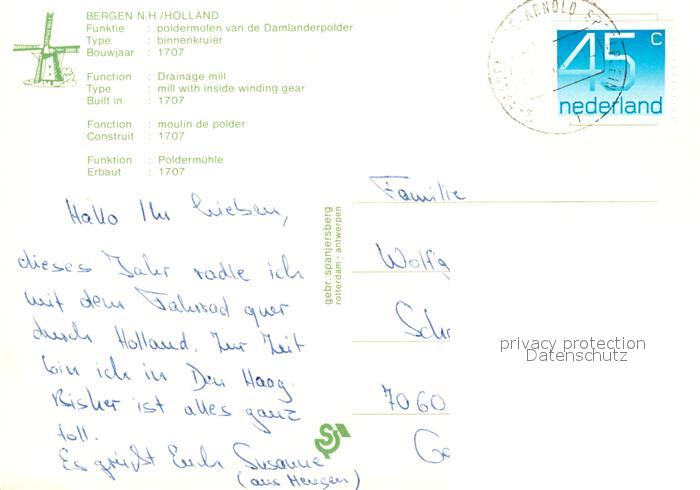 BERGEN N.H./HOLLAND
Funktie : poldermolen van de Damlanderpolder
Type : binnenkruier
Bouwjaar : 1707
Function : Drainage mill
Type : mill with inside winding gear
Built in : 1707
Fonction : moulin de polder
Construit : 1707
Funktion : Poldermühle
Erbaut : 1707
45 c
nederland
ARNOLD
Hallo Ihr Lieben,
dieses Jahr radle ich
mit dem Fahrrad quer
durch Holland. Zur Zeit
bin ich in Den Haag.
Bisher ist alles ganz
toll.
Es grüßt Euch Susanne
(aus Mengen)
gebr. spanjersberg
rotterdam - antwerpen
Familie
Wolfg
Schr
7060
privacy protection
Datenschutz